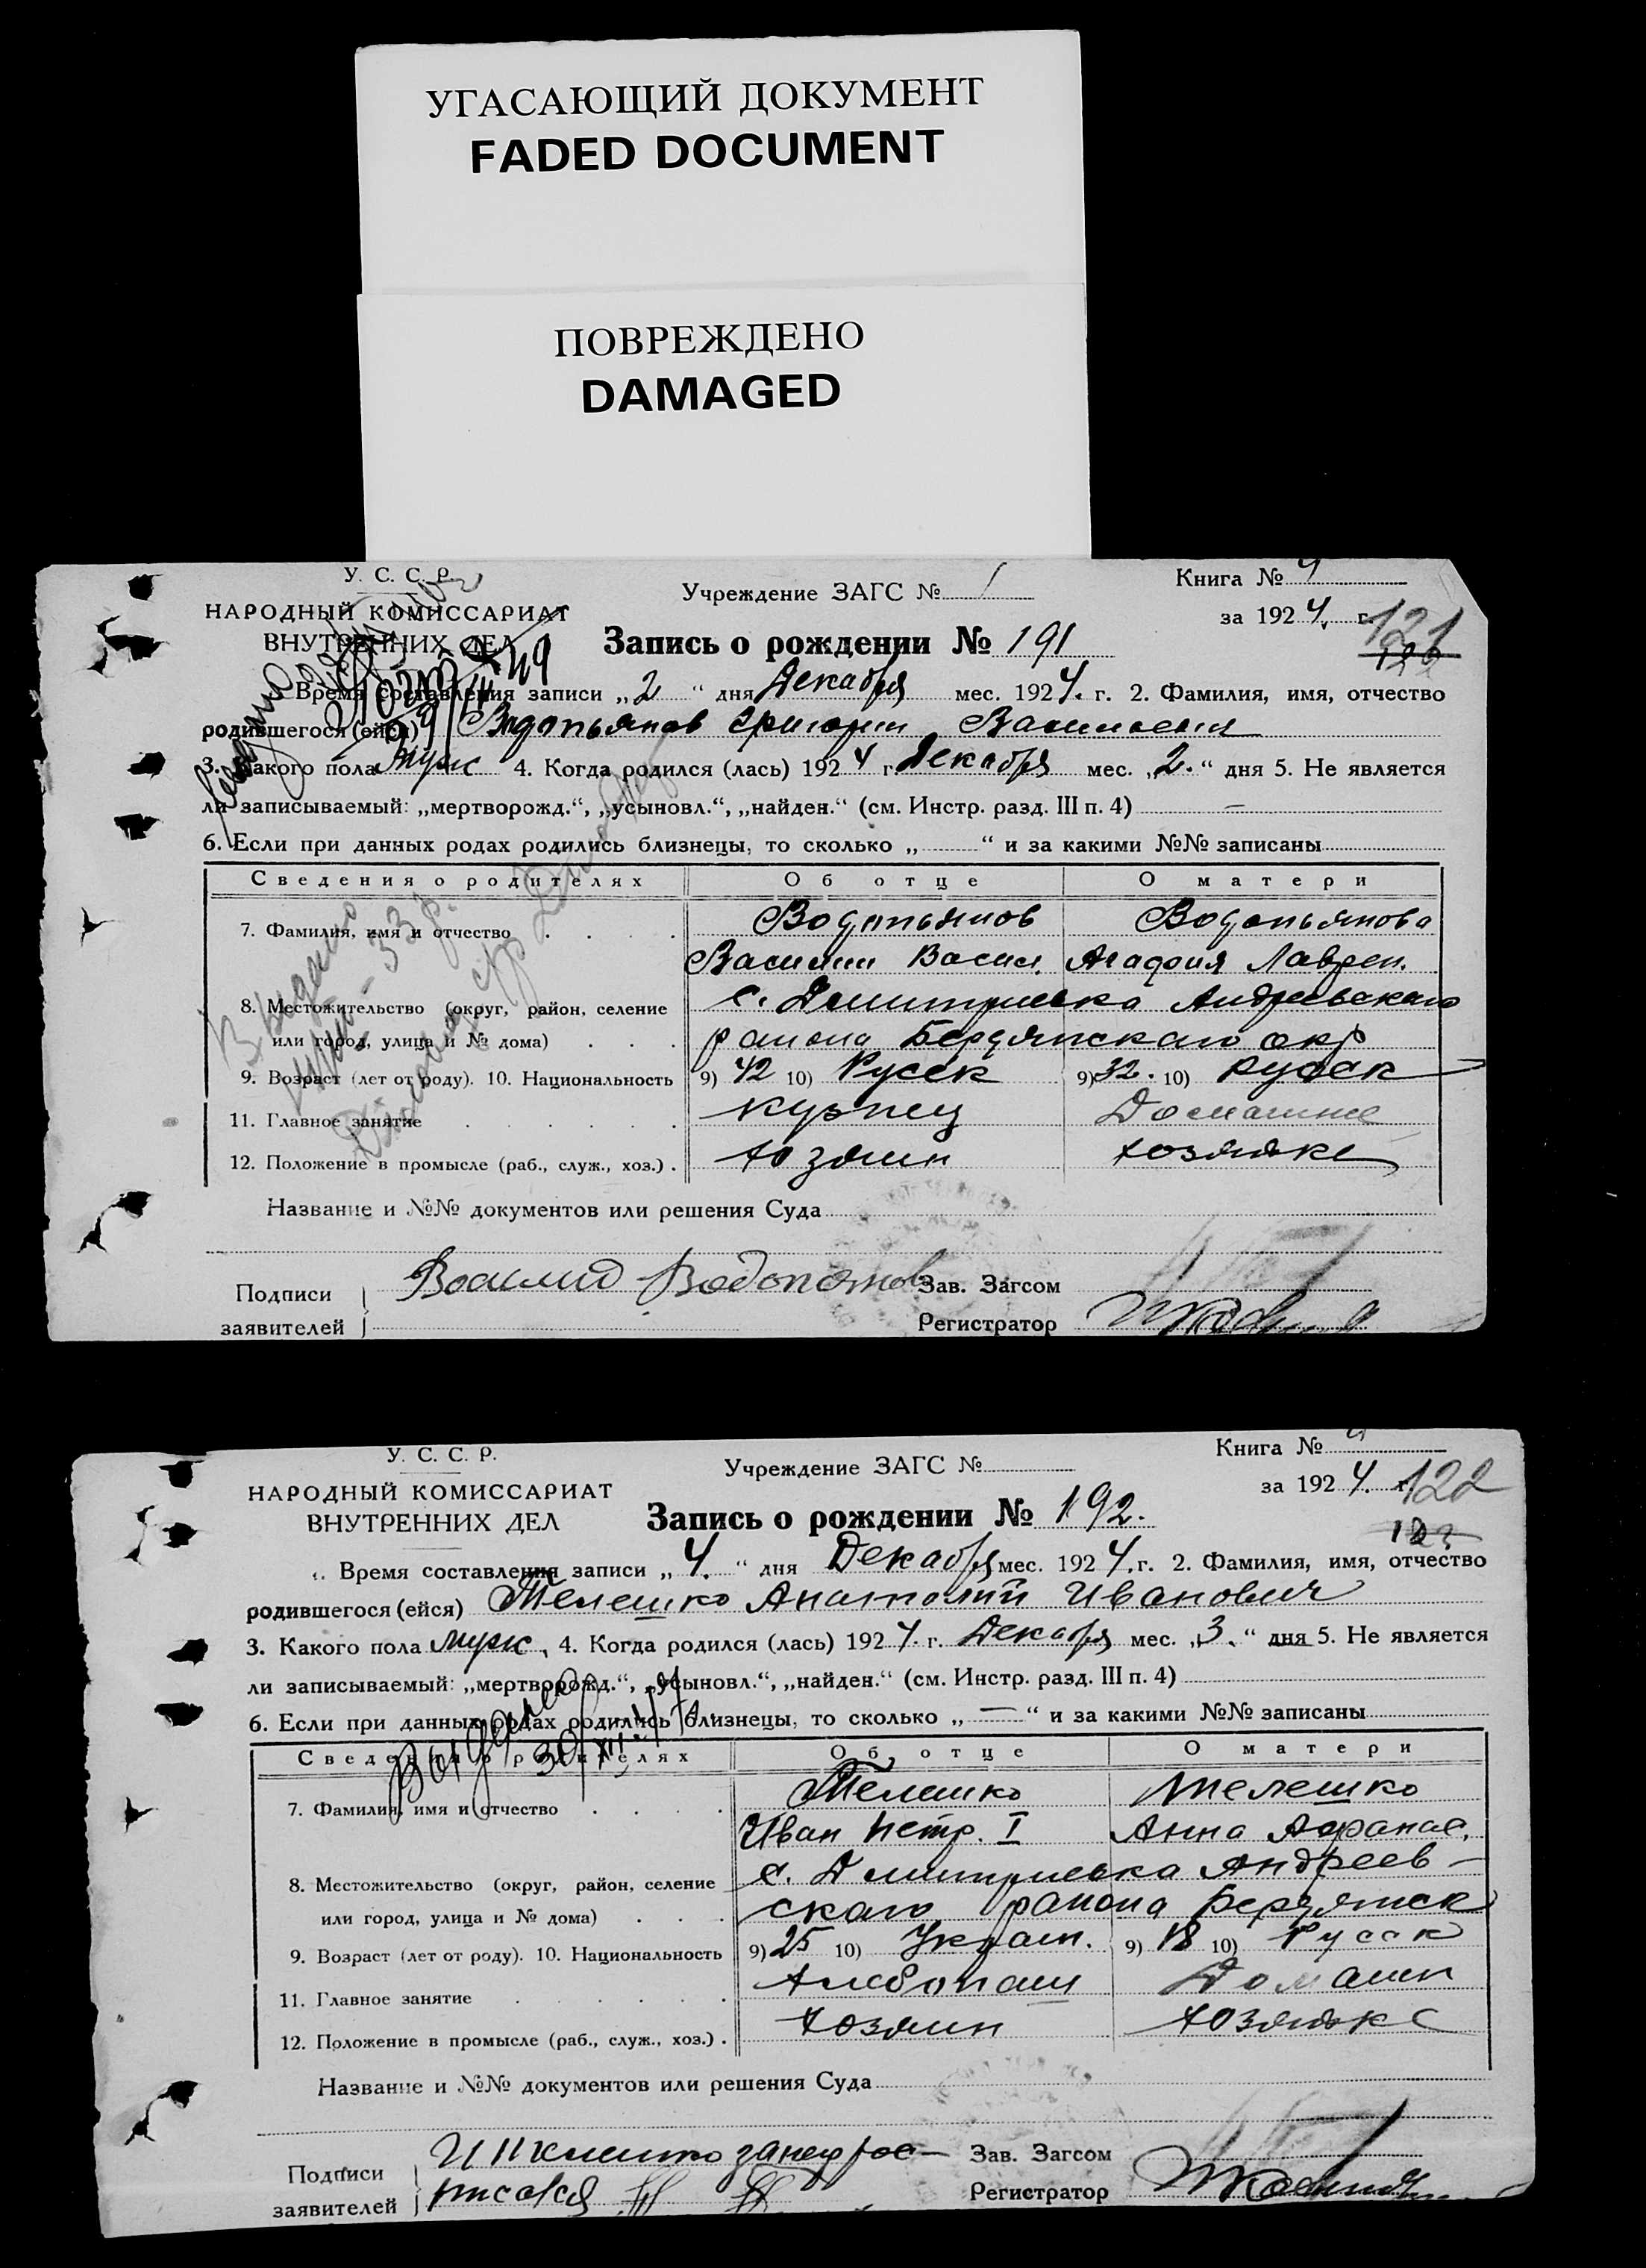 УГАСАЮЩИЙ ДОКУМЕНТ
FADED DOCUMENT
ПОВРЕЖДЕНО
DAMAGED
У. С. С. Р.
НАРОДНЫЙ КОМИССАРИАТ
ВНУТРЕННИХ ДЕЛ
Учреждение ЗАГС № 1
Книга № 4
за 1924 г.
121
Запись о рождении № 191
Время составления записи „2“ дня Декабря мес. 1924. г. 2. Фамилия, имя, отчество
родившегося (ейся) Водопьянов Григорий Васильевич
3. Какого пола муж 4. Когда родился (лась) 1924 г. Декабря мес. „2.“ дня 5. Не является
ли записываемый: „мертворожд.“, „усыновл.“, „найден.“ (см. Инстр. разд. III п. 4) —
6. Если при данных родах родились близнецы, то сколько „ “ и за какими №№ записаны
Сведения о родителях Об отце О матери
7. Фамилия, имя и отчество Водопьянов Водопьянова
Василий Васил. Агафия Лаврен.
8. Местожительство (округ, район, селение с. Дмитриевка Андреевского
или город, улица и № дома) района Бердянского окр
9. Возраст (лет от роду). 10. Национальность 9) 42 10) Русск 9) 32. 10) Русск
11. Главное занятие кузнец Домашнее
12. Положение в промысле (раб., служ., хоз.) хозяин хозяйка
Название и №№ документов или решения Суда
Подписи Василий Водопянов Зав. Загсом
заявителей Регистратор
У. С. С. Р.
НАРОДНЫЙ КОМИССАРИАТ
ВНУТРЕННИХ ДЕЛ
Учреждение ЗАГС №
Книга № 4
за 1924. г.
122
123
Запись о рождении № 192.
Время составления записи „4.“ дня Декабря мес. 1924. г. 2. Фамилия, имя, отчество
родившегося (ейся) Телешко Анатолий Иванович
3. Какого пола муж, 4. Когда родился (лась) 1924. г. Декабря мес. „3.“ дня 5. Не является
ли записываемый: „мертворожд.“, „усыновл.“, „найден.“ (см. Инстр. разд. III п. 4)
6. Если при данных родах родились близнецы, то сколько „—“ и за какими №№ записаны
Сведения о родителях Об отце О матери
7. Фамилия, имя и отчество Телешко Телешко
Иван Петр. I Анна Афанас.
8. Местожительство (округ, район, селение с. Дмитриевка Андреев-
или город, улица и № дома) ского района Бердянск
9. Возраст (лет от роду). 10. Национальность 9) 25 10) Украин. 9) 18 10) Русск
11. Главное занятие хлебопаш Домашн
12. Положение в промысле (раб., служ., хоз.) хозяин хозяйка
Название и №№ документов или решения Суда
Подписи Зав. Загсом
заявителей Регистратор